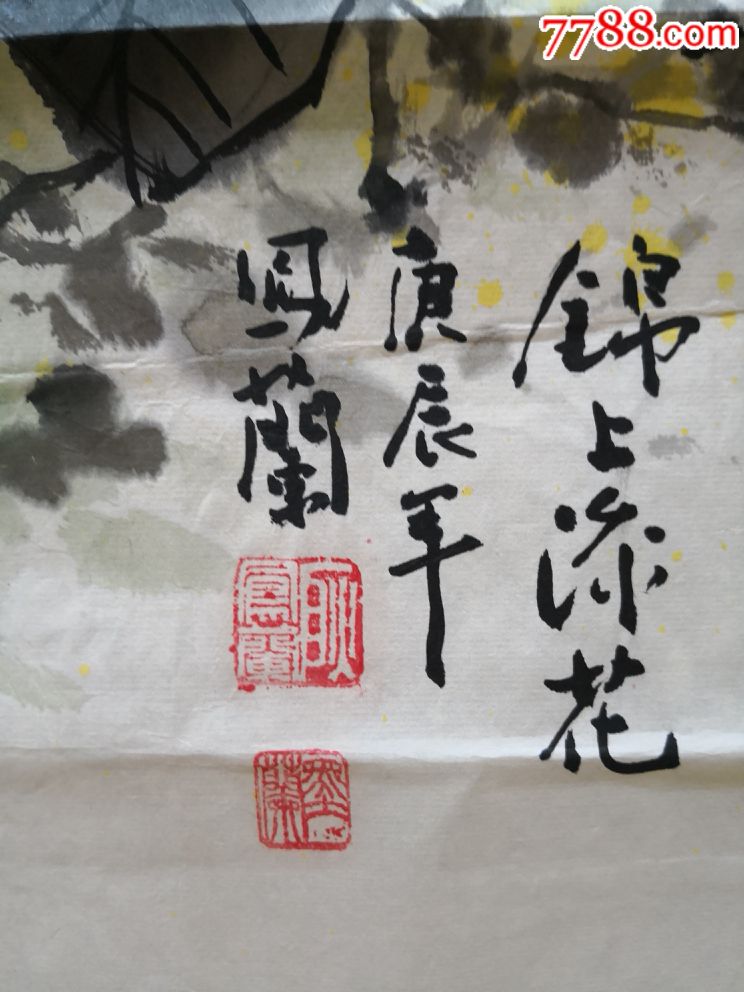 7788.com
錦上添花
庚辰年
鳳蘭